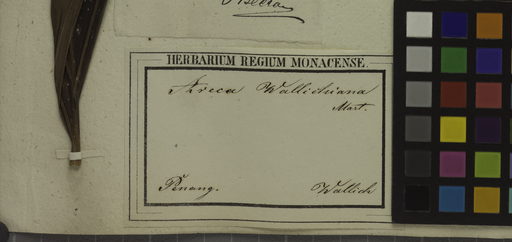 HERBARIUM REGIUM MONACENSE.
Areca Wallichiana
Mart.
Penang. Wallich